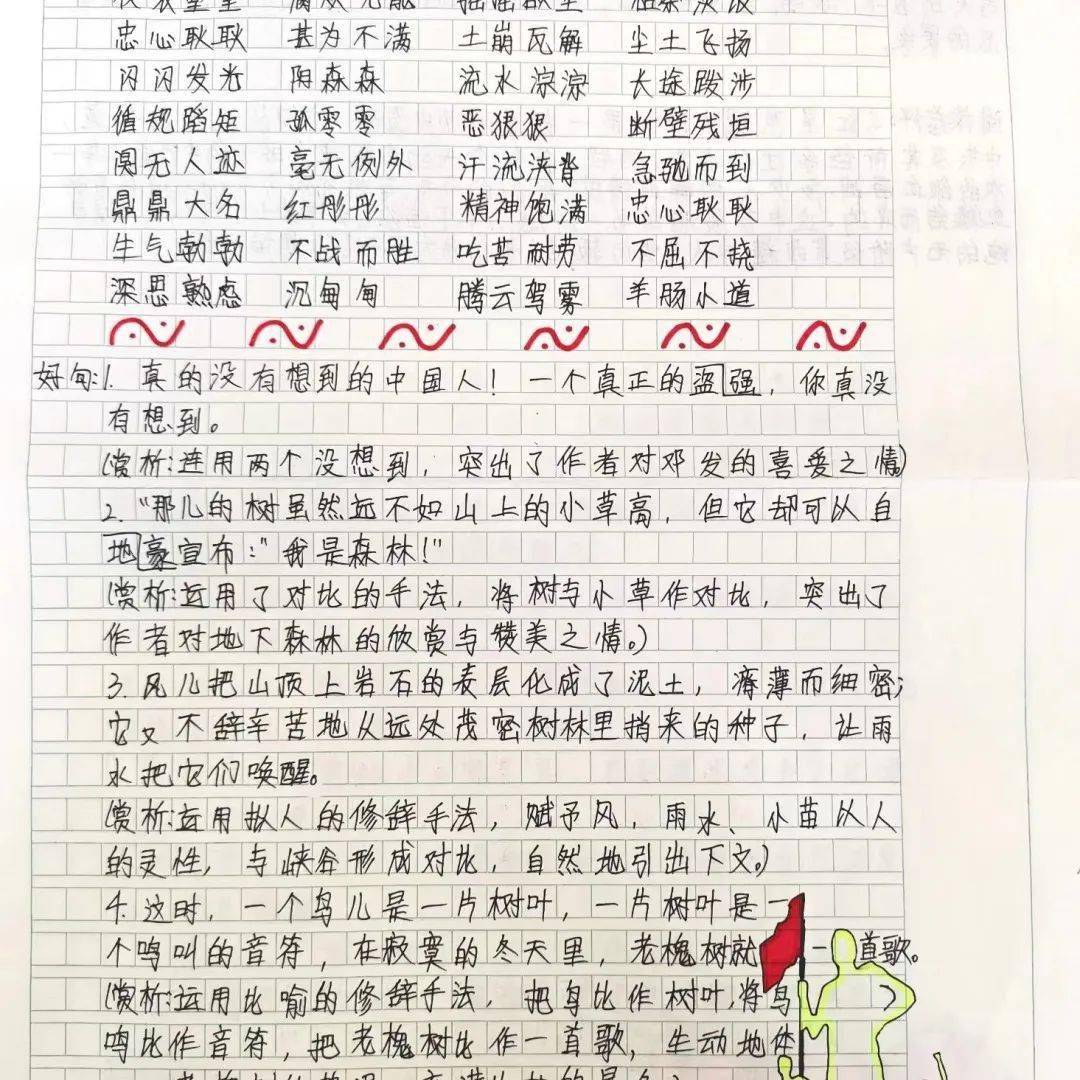 忠心耿耿 甚为不满 土崩瓦解 尘土飞扬
闪闪发光 阴森森 流水淙淙 长途跋涉
循规蹈矩 孤零零 恶狠狠 断壁残垣
阒无人迹 毫无例外 汗流浃背 急驰而到
鼎鼎大名 红彤彤 精神饱满 忠心耿耿
生气勃勃 不战而胜 吃苦耐劳 不屈不挠
深思熟虑 沉甸甸 腾云驾雾 羊肠小道
好句:1. 真的没有想到的中国人！一个真正的盗强，你真没
有想到。
(赏析:连用两个没想到，突出了作者对邓发的喜爱之情)
2. “那儿的树虽然远不如山上的小草高，但它却可以自
地豪宣布:“我是森林！”
(赏析:运用了对比的手法，将树与小草作对比，突出了
作者对地下森林的欣赏与赞美之情。)
3. 风儿把山顶上岩石的表层化成了泥土，瘠薄而细密;
它又不辞辛苦地从远处茂密树林里捎来的种子，让雨
水把它们唤醒。
(赏析:运用拟人的修辞手法，赋予风，雨水、小苗以人
的灵性，与峡谷形成对比，自然地引出下文。)
4. 这时，一个鸟儿是一片树叶，一片树叶是一
个鸣叫的音符，在寂寞的冬天里，老槐树就一首歌。
(赏析:运用比喻的修辞手法，把鸟比作树叶,将鸟
鸣比作音符，把老槐树比作一首歌，生动地体